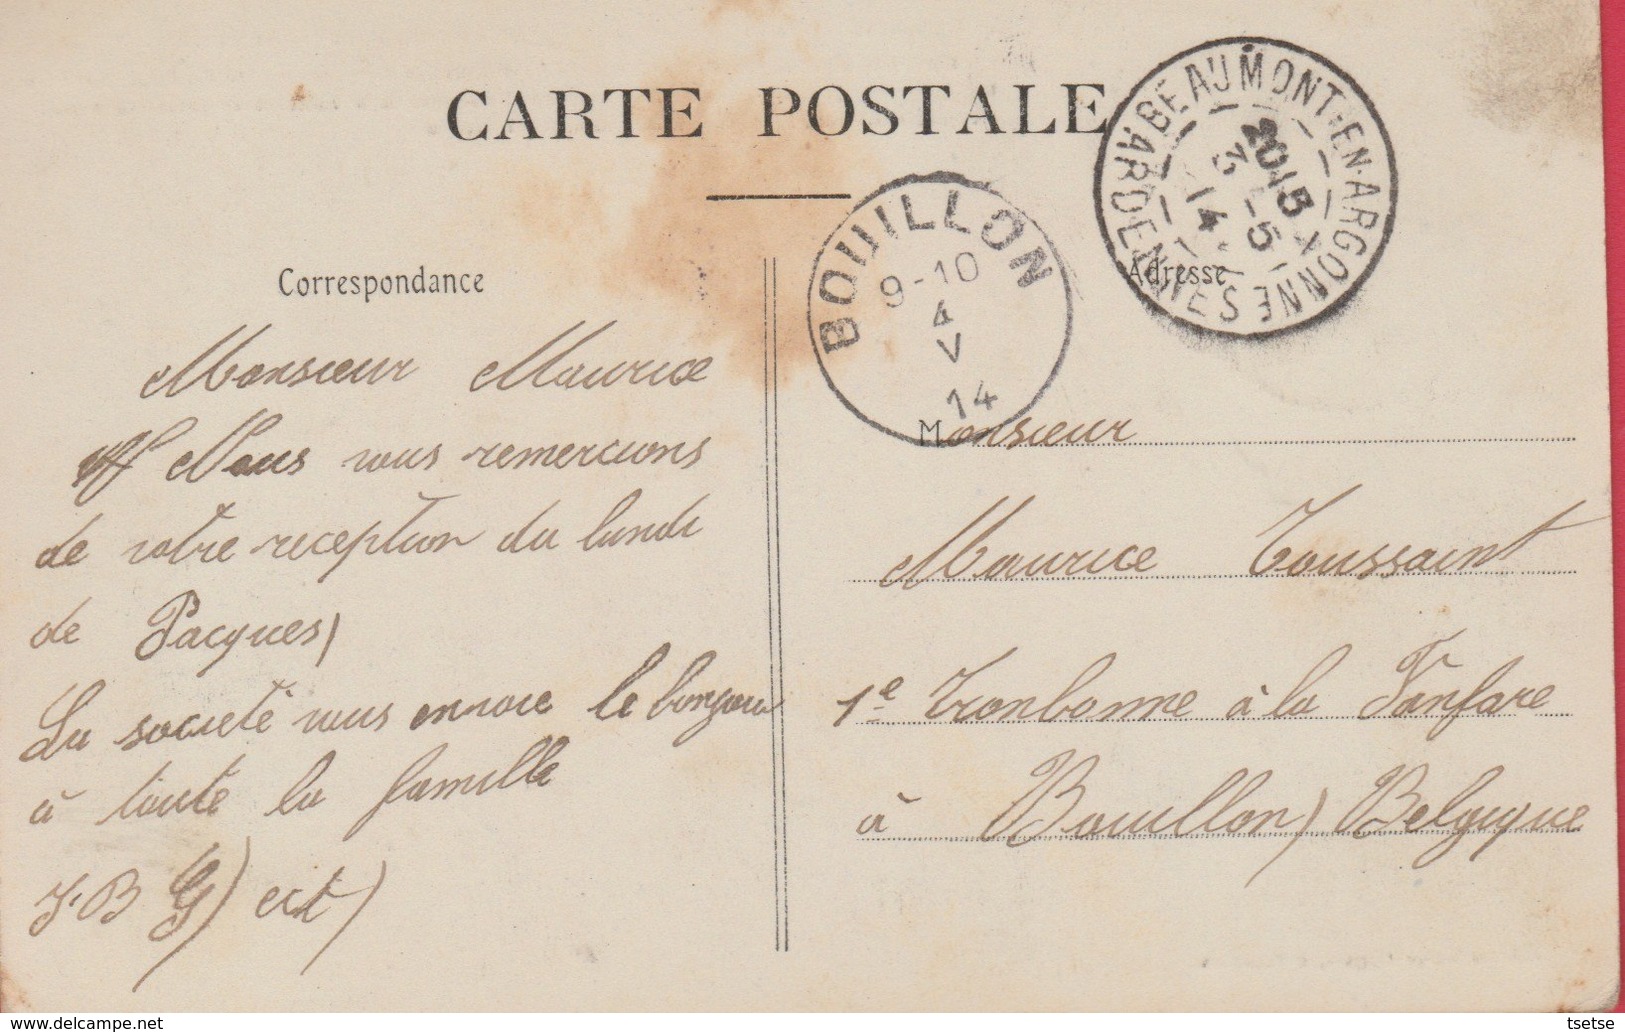 CARTE POSTALE
BEAUMONT-EN-ARGONNE
ARDENNES
2015
3 - 5
14
BOUILLON
9-10
4
V
14
Correspondance
Adresse
Monsieur Maurice
Nous vous remercions
de votre reception du lundi
de Pacques)
La societé vous envoie le bonjour
à toute la famille
J.B G) ect)
Monsieur
Maurice Toussaint
1e Trombonne à la Fanfare
à Bouillon) Belgique
tsetse